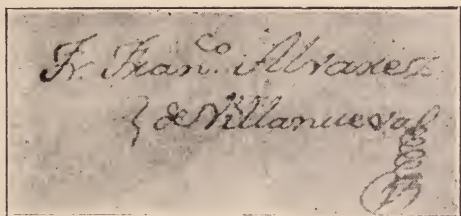 Fr. Fran.co Alvarez
de Villanueva